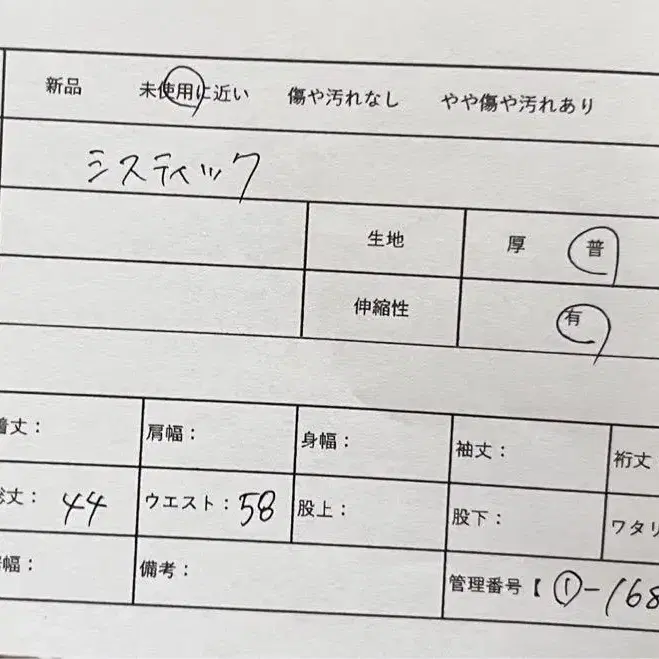 新品 未使用に近い 傷や汚れなし やや傷や汚れあり
ミスティック
生地 厚 普
伸縮性 有
着丈： 肩幅： 身幅： 袖丈： 裄丈
総丈：44 ウエスト：58 股上： 股下： ワタリ
幅： 備考： 管理番号【 ①-168